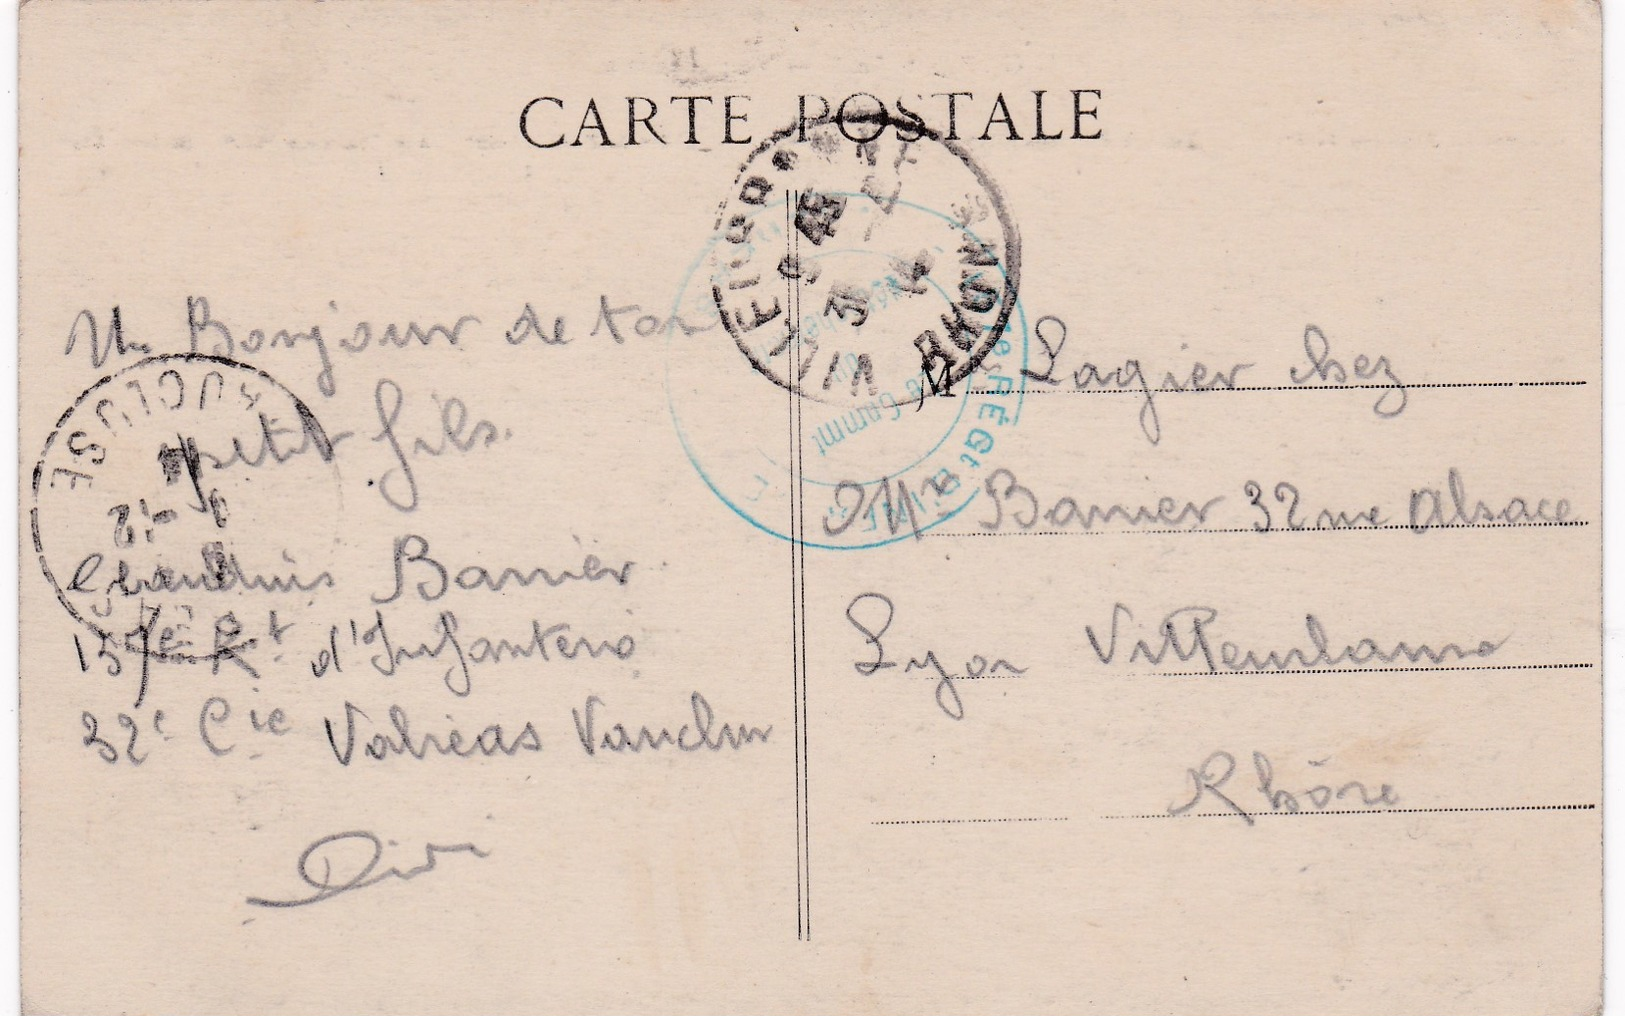 CARTE POSTALE
Un Bonjour de ton
petit fils.
Claudius Banier
157e Rt d'Infanterie
32e Cie Valreas Vaucluse
Didi
M Lagier chez
Mr Banier 32 rue Alsace
Lyon Villeurbanne
Rhône
VAUCLUSE
-12
RHONE
9 45
31
14
RÉGt D'INF
Commt